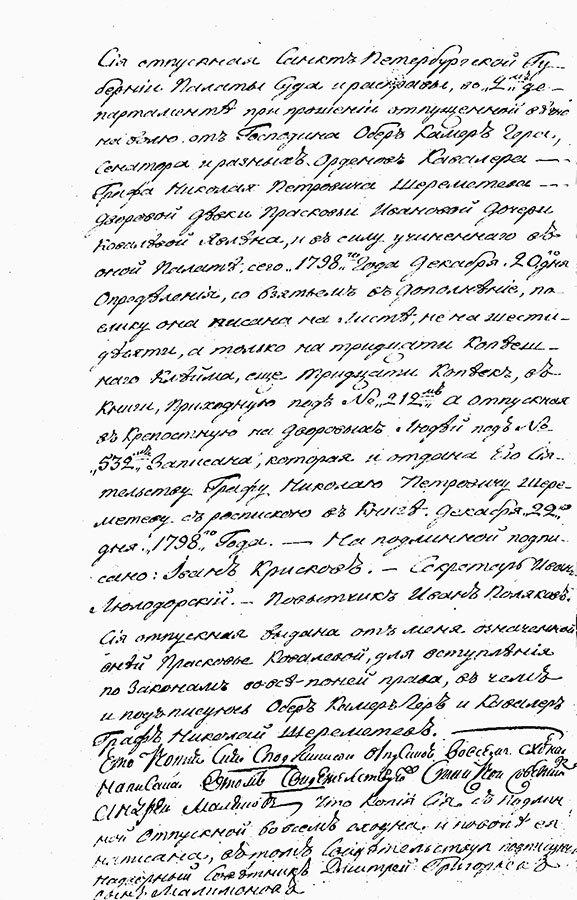 Сія отпускная Санктъ Петербургской Гу-
берніи Палаты Суда и расправы, во „2„мъ де-
партаментѣ при прошеніи отпущенной вѣчно
на волю отъ Господина Оберъ Камеръ Гера,
Сенатора и разныхъ Орденовъ Кавалера —
Графа Николая Петровича Шереметева —
дворовой дѣвки Прасковьи Ивановой дочери
Ковалевой явлена, и въ силу учиненнаго въ
оной Палатѣ, сего „1798„го Года Декабря „20го дня
Опредѣленія, со взятьемъ въ дополненіе, по-
елику она писана на Листѣ, не на шести-
десяти, а только на тридцати Копѣеш-
наго Клейма, еще тридцати Копѣекъ, въ
Книги, Приходную подъ № „212„мъ а отпускная
въ Крепостную на дворовыхъ Людей подъ №
„532„мъ Записана, которая и отдана Его Сія-
тельству Графу Николаю Петровичу Шере-
метеву съ роспискою въ Книгѣ. Декабря „22„го
дня „1798„го Года. — На подлинной подпи-
сано: Иванъ Крисковъ. — Секретарь Иванъ
Люлодорскій. — Повытчикъ Иванъ Поляковъ.
Сія отпускная выдана отъ меня означенной
Прасковье Ковалевой, для вступленія
по Законамъ во всѣ по ней права, въ чемъ
и подписуюсь Оберъ Камеръ Геръ и Кавалеръ
Графъ Николай Шереметевъ.
Что Копія Сія Съ Подлинною Отпускною Во всемъ сходна
написана Въ томъ Свидетельствую
Что Копія Сія съ Подлин-
ной Отпускной во всемъ сходна и
написана, въ томъ Свидѣтельствуя подписуюсь
надворный Совѣтникъ Дмитрей Григорьевъ
сынъ Малимоновъ